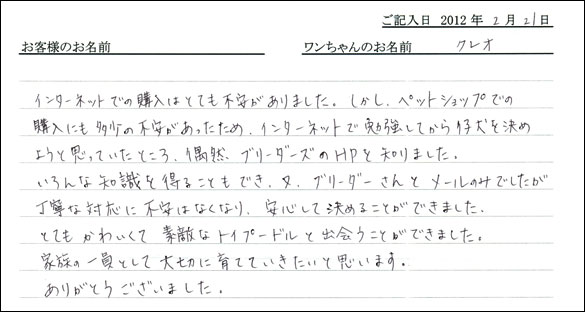 ご記入日 2012 年 2 月 21 日
お客様のお名前 ワンちゃんのお名前 クレオ
インターネットでの購入はとても不安がありました。しかし、ペットショップでの
購入にも多少の不安があったため、インターネットで勉強してから仔犬を決め
ようと思っていたところ、偶然、ブリーダーズのHPを知りました。
いろんな知識を得ることもでき、又、ブリーダーさんとメールのみでしたが
丁寧な対応に不安はなくなり、安心して決めることができました。
とてもかわいくて素敵なトイプードルと出会うことができました。
家族の一員として大切に育てていきたいと思います。
ありがとうございました。